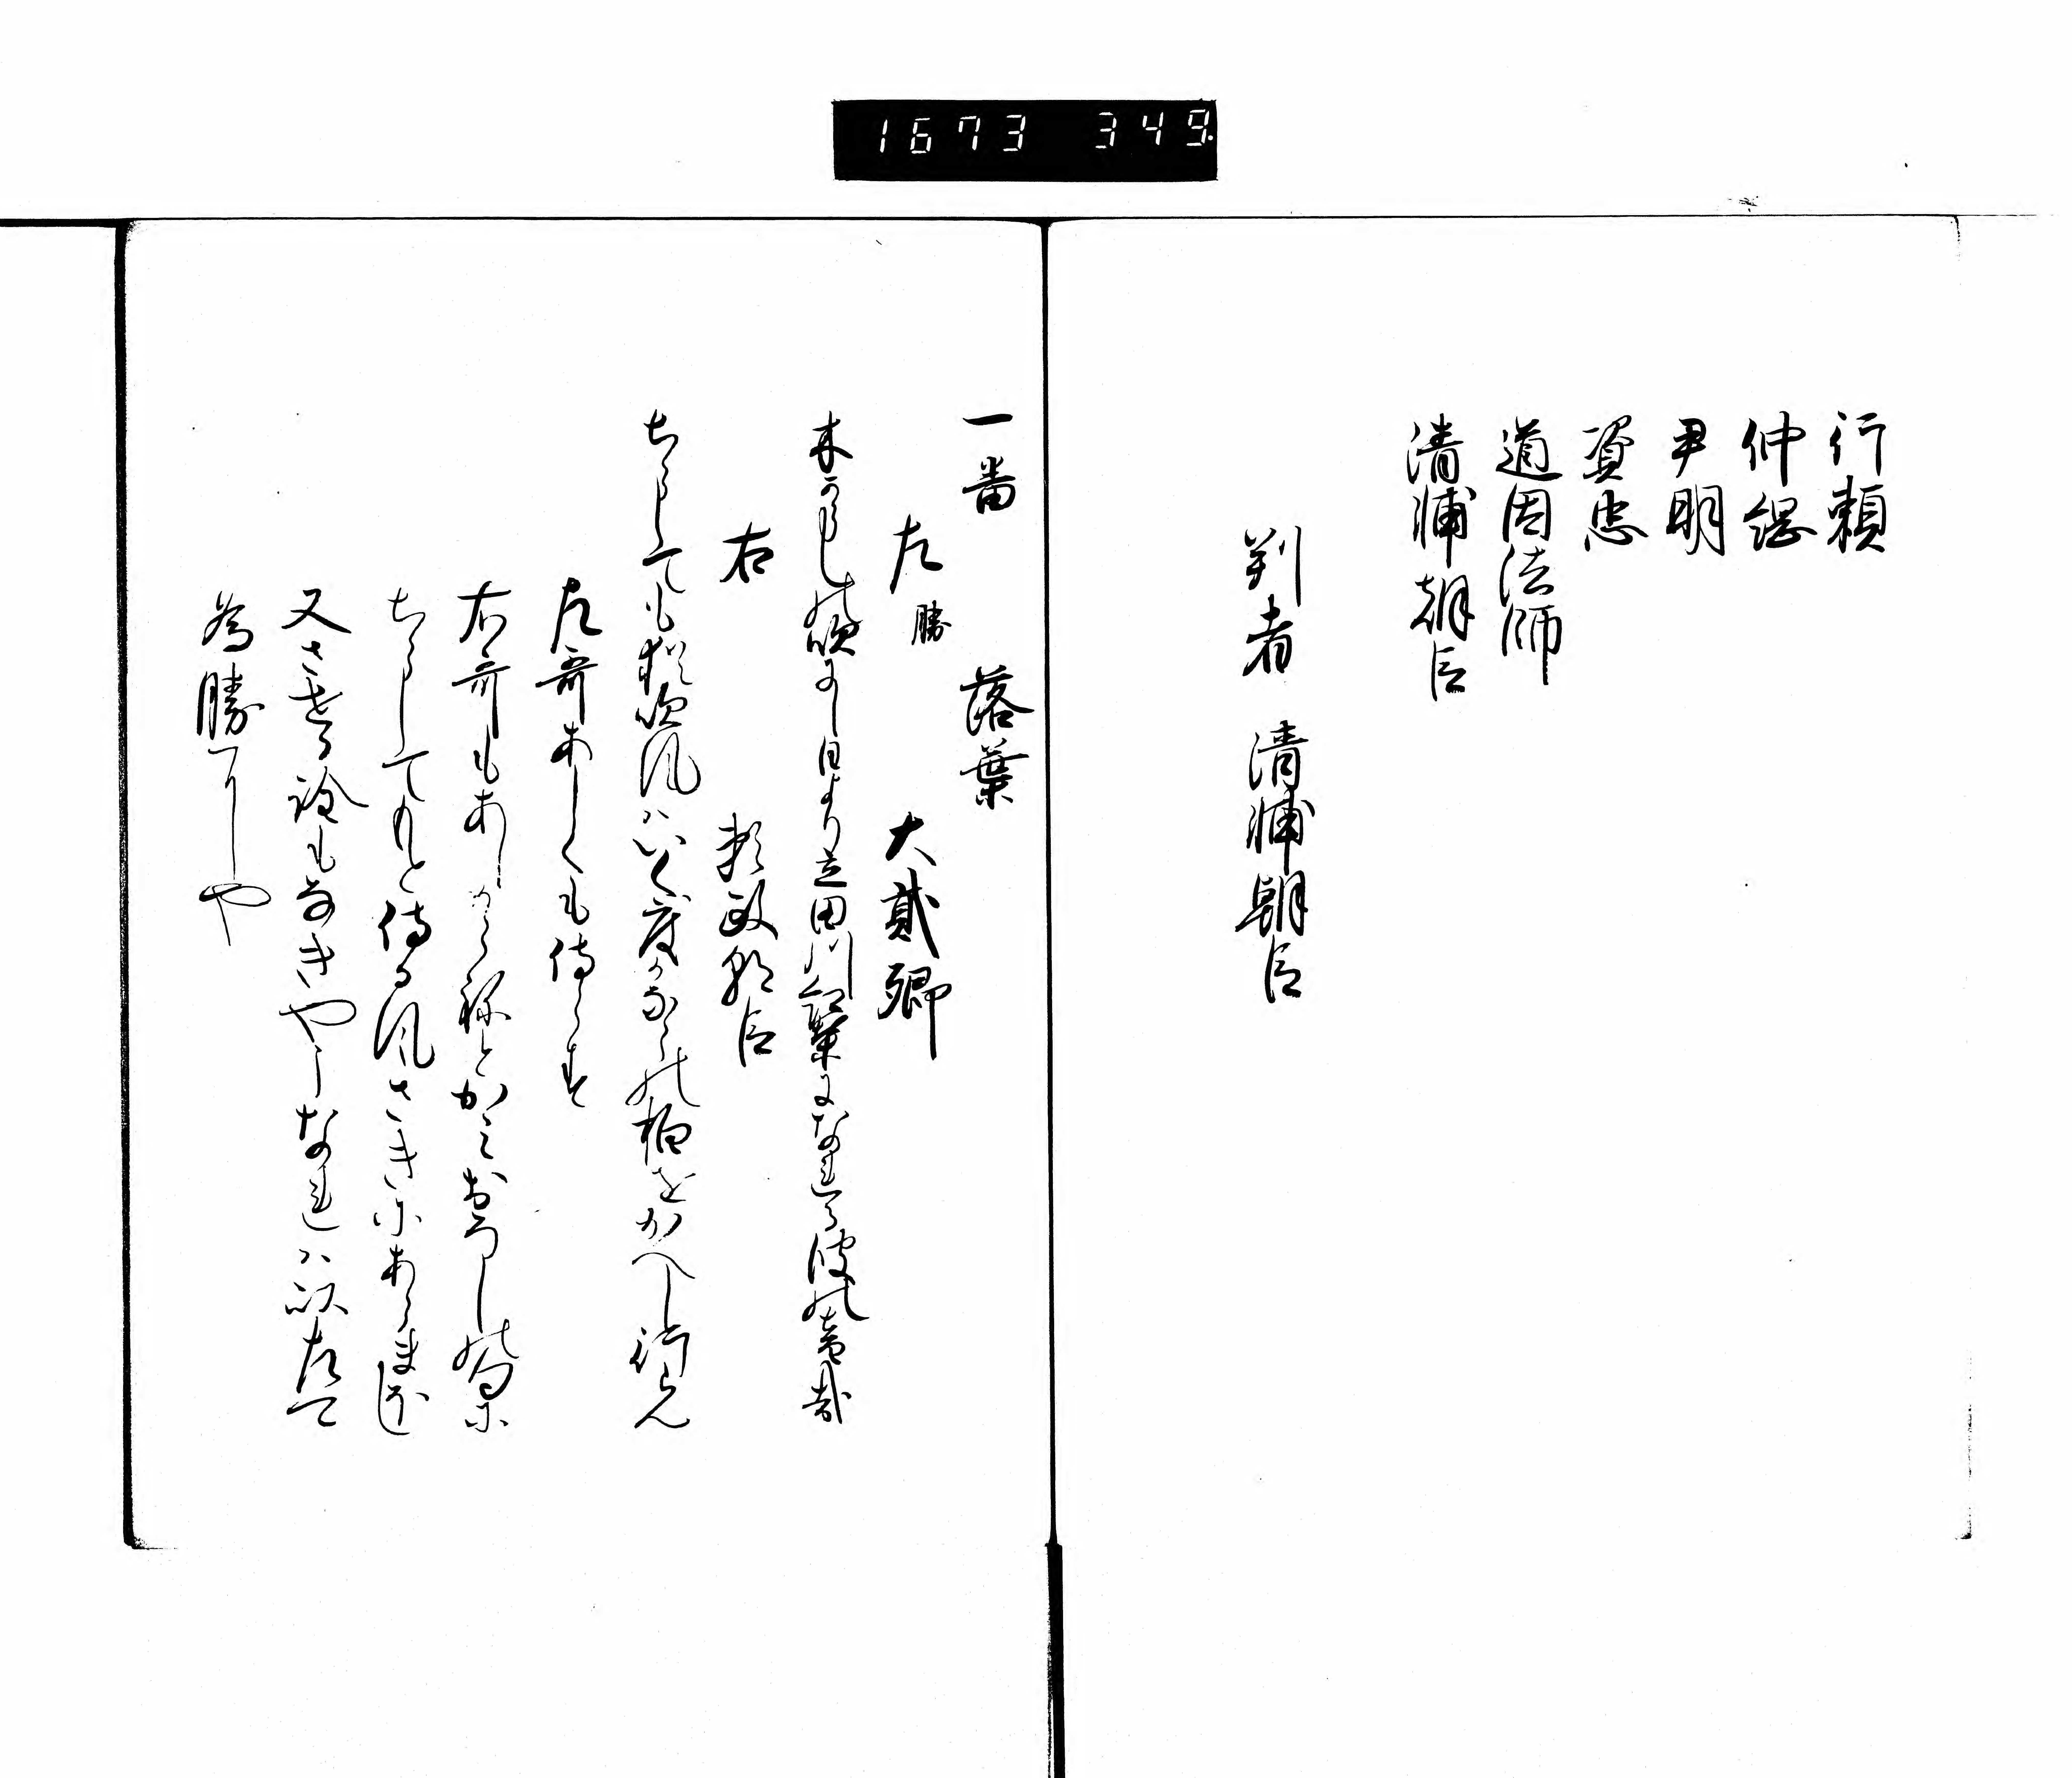 1673 349
行頼
仲綱
尹明
資忠
道因法師
清輔朝臣
判者 清輔朝臣
一番 落葉
左勝 大貳卿
木からしの吹にし日より立田川紅葉になれる波の音哉
右 頼政朝臣
ちらしても猶吹風はいく度かならの柏をかへし行らん
左哥あしくも侍らす
右哥もあしからねとかみおろしの句に
ちらしてもと侍る風さきにあらまほし
又させる詮もなきやうなれは以左て
為勝へしや